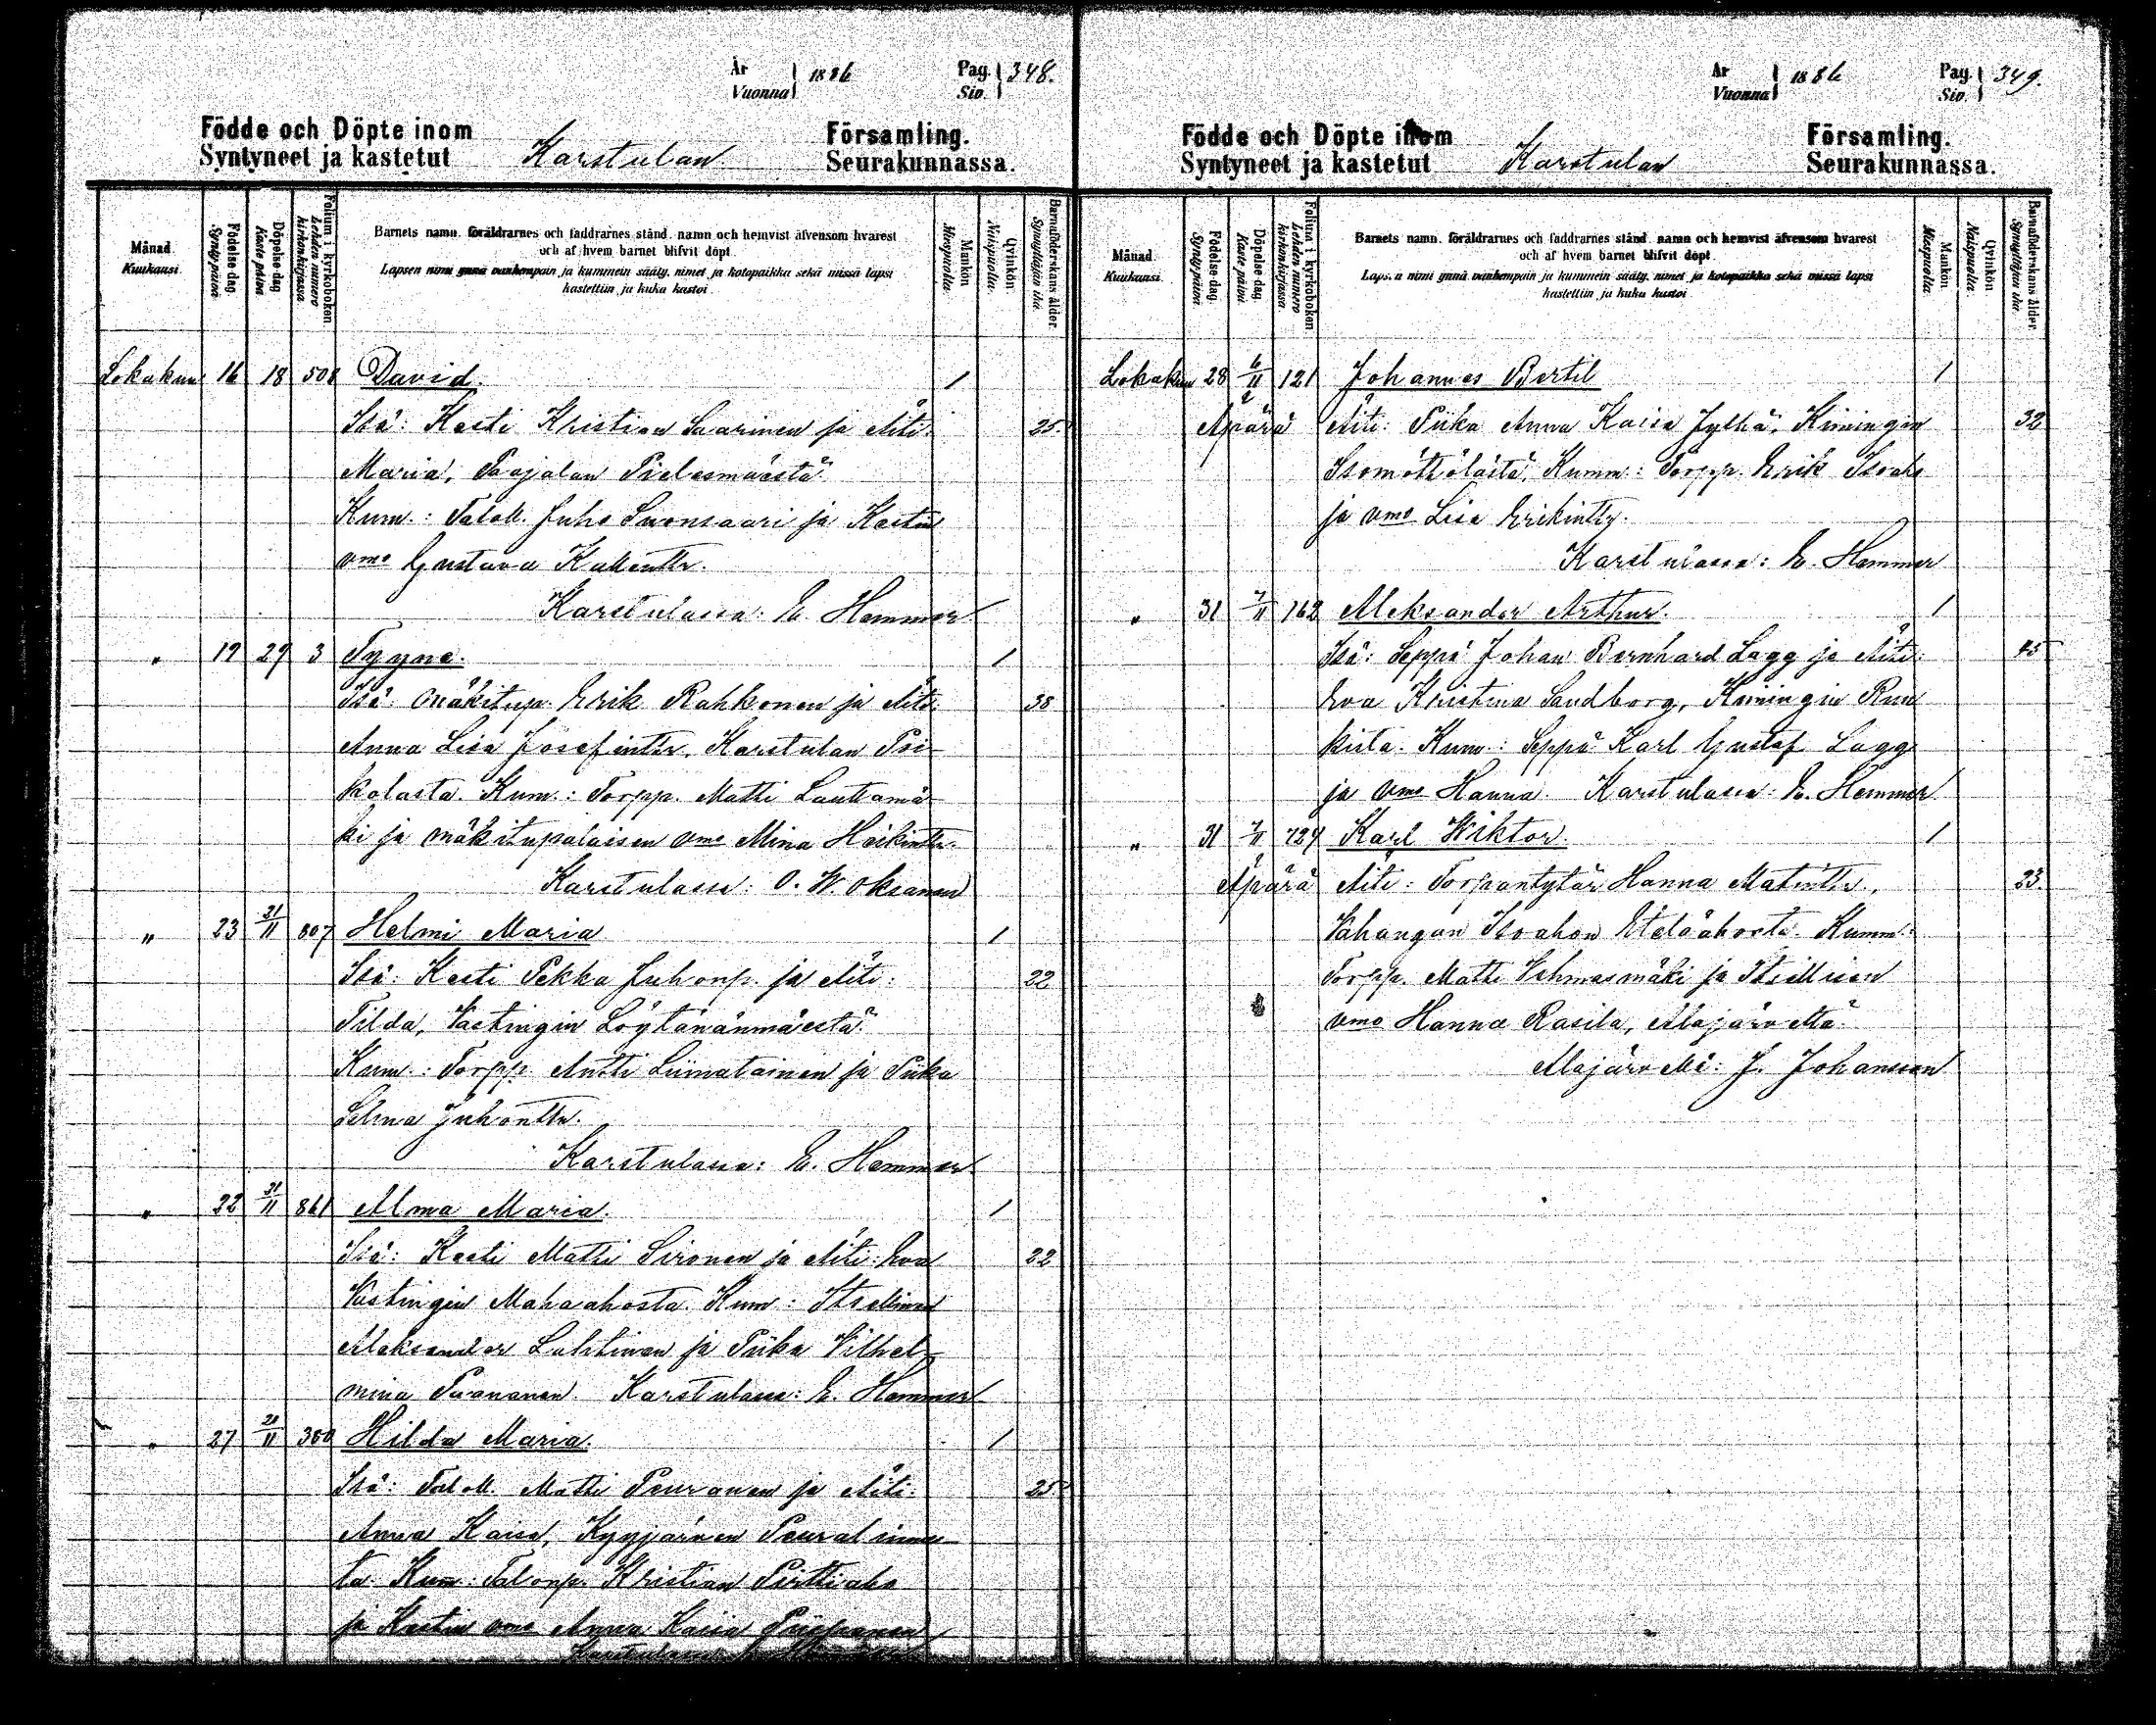 År
Vuonna } 1886
Pag.
Siv. } 348.
Födde och Döpte inom
Syntyneet ja kastetut
Karstulan
Församling.
Seurakunnassa.
Månad.
Kuukausi.
Födelse dag.
Synty päivä
Döpelse dag
Kaste päivä
Folium i kyrkoboken
Lehden numero kirkonkirjassa
Barnets namn, föräldrarnes och faddrarnes stånd, namn och hemvist äfvensom hvarest
och af hvem barnet blifvit döpt.
Lapsen nimi ynnä vanhempain ja kummein sääty, nimet ja kotopaikka sekä missä lapsi
kastettiin ja kuka kastoi.
Mankön
Miespuolia.
Qvinkön.
Naispuolia.
Barnaföderskans ålder.
Synnyttäjän ikä
Lokakuu 16 18 508 David. 1
Isä: Kesti Kristian Saarinen ja Äiti: 25.
Maria, Paajalan Pielesmäestä.
Kum.: Taloll. Juho Suonsaari ja Kestin
vmo Gustava Kallentr.
Karstulassa: E. Hammar
" 19 29 3 Tyyne. 1
Isä: Mäkitup. Erik Rahkonen ja Äiti: 38
Anna Lisa Josefintr. Karstulan Pii-
kolasta. Kum.: Torpp. Matti Lauttamä-
ki ja mäkitupalaisen vmo Mina Heikintr.
Karstulassa: O. W. Oksanen
" 23 31/11 807 Helmi Maria 1
Isä: Kesti Pekka Juhonp. ja Äiti: 22
Tilda, Vastingin Löytänänmäestä.
Kum.: Torpp. Antti Liimatainen ja Piika
Selma Juhontr.
Karstulassa: E. Hammar
" 22 31/11 861 Alma Maria. 1
Isä: Kesti Matti Sironen ja Äiti: Eva 22
Vastingin Mahaahosta. Kum: Itsellinen
Aleksander Lahtinen ja Piika Vilhel-
mina Paananen. Karstulassa: E. Hammar
" 27 300 Hilda Maria. 1
Isä: Taloll. Matti Peuranen ja Äiti: 25
Anna Kaisa, Kyyjärven Peuralinnas-
ta. Kum: Talonp. Kristian Pirttiaho
ja Kestin vmo Anna Kaisa Piispanen
Karstulassa:
År
Vuonna } 1886
Pag.
Siv. } 349.
Födde och Döpte inom
Syntyneet ja kastetut
Karstulan
Församling.
Seurakunnassa.
Månad.
Kuukausi.
Födelse dag.
Synty päivä
Döpelse dag.
Kaste päivä
Folium i kyrkoboken
Lehden numero kirkonkirjassa
Barnets namn, föräldrarnes och faddrarnes stånd, namn och hemvist äfvensom hvarest
och af hvem barnet blifvit döpt.
Lapsen nimi ynnä vanhempain ja kummein sääty, nimet ja kotopaikka sekä missä lapsi
kastettiin ja kuka kastoi.
Mankön
Miespuolia.
Qvinkön
Naispuolia.
Barnaföderskans ålder.
Synnyttäjän ikä
Lokakuu 28 6/11 121 Johannes Bertil 1
Äpärä Äiti: Piika Anna Kaisa Jylhä, Kimingin 32
Isomöttöläitä. Kumm.: Torpp. Erik Isoaho
ja vmo Lisa Erikintr.
Karstulassa: E. Hammar
" 31 7/11 162 Aleksander Arthur. 1
Isä: Seppä Johan Bernhard Lagg ja Äiti: 45
Eva Kristina Sandborg, Kimingin Run
kista. Kum.: Seppä Karl Gustaf Lagg
ja vmo Hanna. Karstulassa: E. Hammar
" 31 7/11 727 Karl Wiktor. 1
Äpärä Äiti: Torpantytär Hanna Matintr., 23.
Vahangan Isoahon Eteläahosta. Kumm.:
Torpp. Matti Vehmasmäki ja Itsellisen
vmo Hanna Rasila, Alajärveltä.
Alajärvellä: J. Johansson